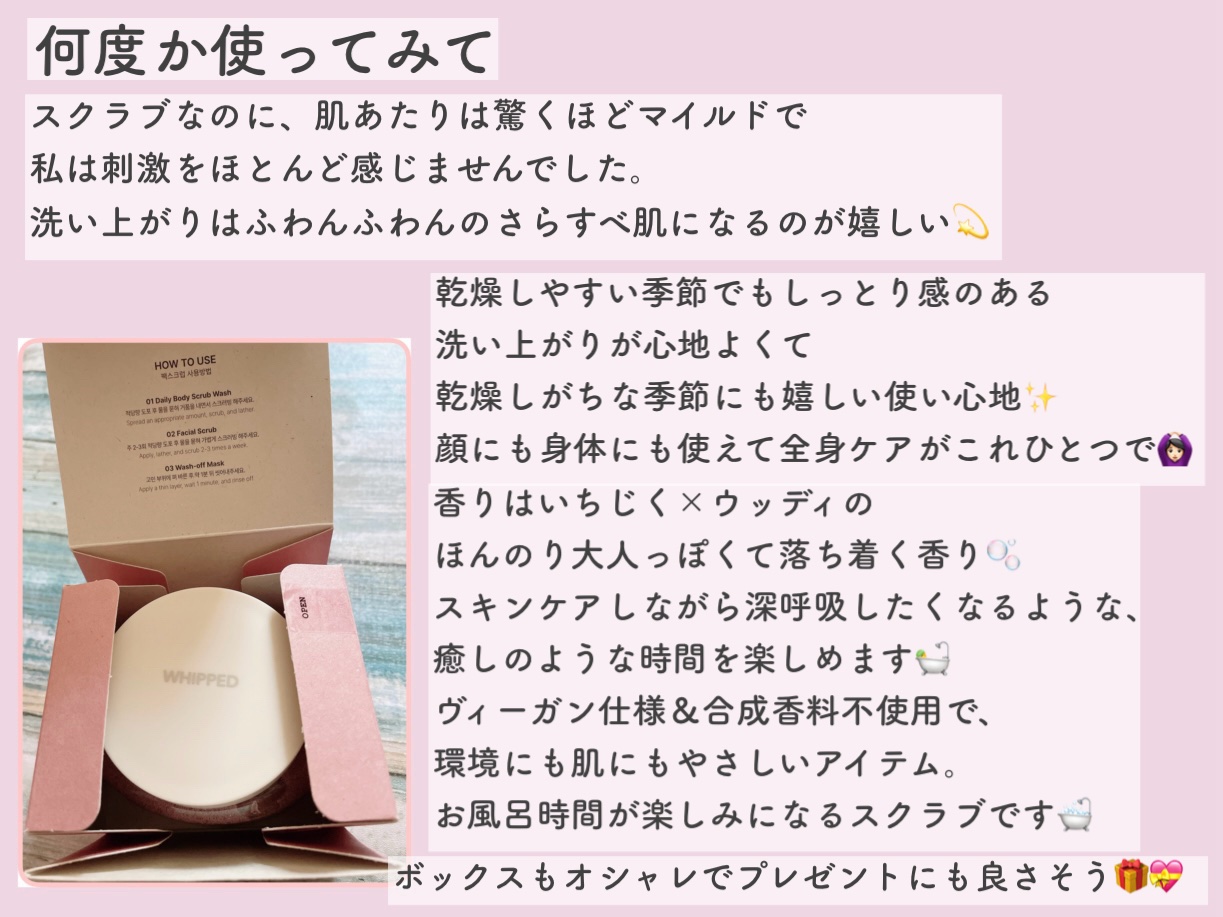 何度か使ってみて
スクラブなのに、肌あたりは驚くほどマイルドで
私は刺激をほとんど感じませんでした。
洗い上がりはふわんふわんのさらすべ肌になるのが嬉しい💫
乾燥しやすい季節でもしっとり感のある
洗い上がりが心地よくて
乾燥しがちな季節にも嬉しい使い心地✨
顔にも身体にも使えて全身ケアがこれひとつで🙆🏻‍♀️
香りはいちじく×ウッディの
ほんのり大人っぽくて落ち着く香り🫧
スキンケアしながら深呼吸したくなるような、
癒しのような時間を楽しめます🛀
ヴィーガン仕様＆合成香料不使用で、
環境にも肌にもやさしいアイテム。
お風呂時間が楽しみになるスクラブです🛁
ボックスもオシャレでプレゼントにも良さそう🎁💝
HOW TO USE
팩스크럽 사용방법
01 Daily Body Scrub Wash
적당량 도포 후 물을 묻혀 거품을 내면서 스크러빙 해주세요.
Spread an appropriate amount, scrub, and lather
02 Facial Scrub
주 2-3회 적당량 도포 후 물을 묻혀 가볍게 스크러빙 해주세요.
Apply, lather, and scrub 2-3 times a week.
03 Wash-off Mask
고민 부위에 펴 바른 후 약 1분 뒤 씻어내주세요.
Apply a thin layer, wait 1 minute, and rinse off
OPEN
WHIPPED